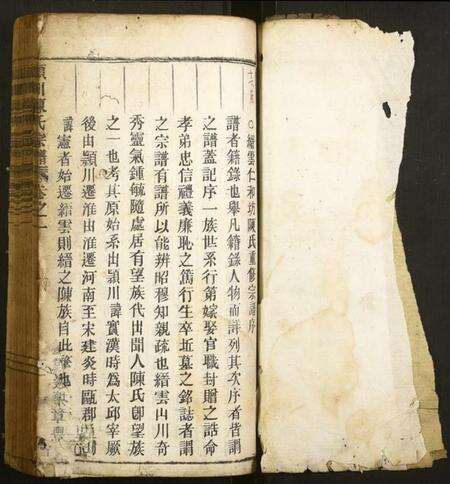 縉雲仁和坊陳氏重修宗譜序
譜者籍錄也舉凡籍錄人物而詳列其次序者皆謂
之譜蓋記序一族世系行第嫁娶官職封贈之誥命
孝弟忠信禮義廉恥之篤行生卒坵墓之銘誌者謂
之宗譜有譜所以能辨昭穆知親疏也縉雲山川奇
秀靈氣鍾毓隨處居有望族代出聞人陳氏卽望族
之一也考其原始系出頴川諱實漢時為太邱宰厥
後由頴川遷淮由淮遷河南至宋建炎時甌郡
諱憲者始遷縉雲則縉之陳族自此
川陳氏宗譜 卷之一